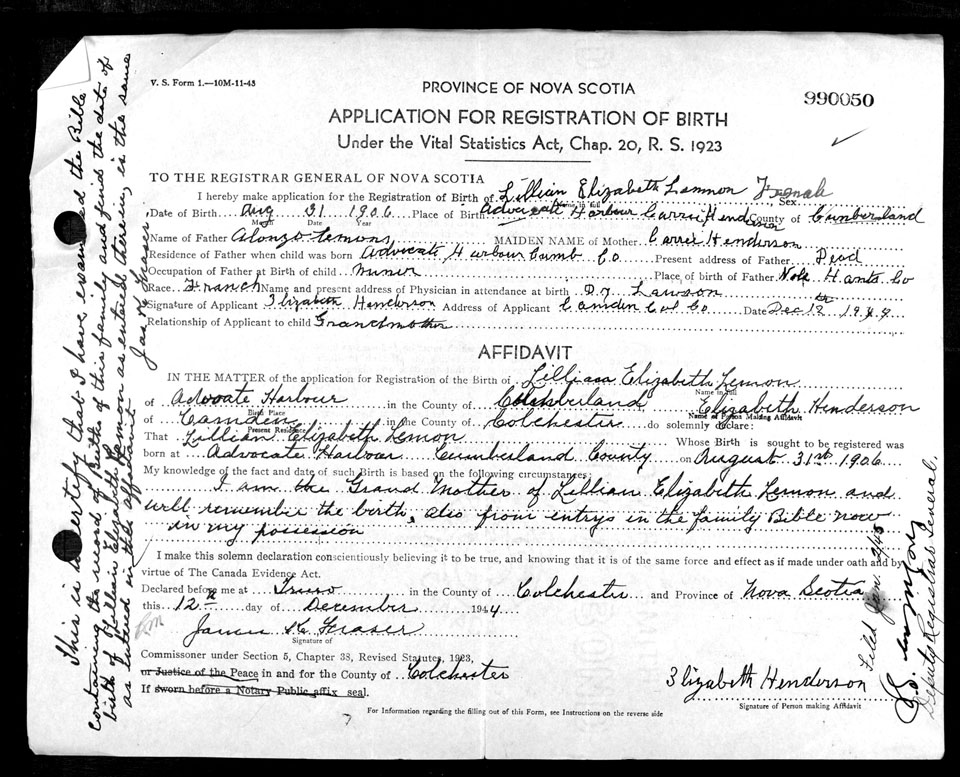 V. S. Form 1.—10M-11-43
PROVINCE OF NOVA SCOTIA
990050
APPLICATION FOR REGISTRATION OF BIRTH
Under the Vital Statistics Act, Chap. 20, R. S. 1923
TO THE REGISTRAR GENERAL OF NOVA SCOTIA
I hereby make application for the Registration of Birth of Lillian Elizabeth Lemmon Female
Name in full Sex
Date of Birth Aug 31 1906 Place of Birth Advocate Harbour Carrie Henderson County of Cumberland
Month Date Year
Name of Father Alonzo Lemons MAIDEN NAME of Mother Carrie Henderson
Residence of Father when child was born Advocate Harbour Cumb Co Present address of Father Dead
Occupation of Father at Birth of child miner Place of birth of Father Hants Co
Race Franch Name and present address of Physician in attendance at birth Dr Lawson
Signature of Applicant Elizabeth Henderson Address of Applicant Camden Col Co Date Dec 12th 1944
Relationship of Applicant to child Grandmother
AFFIDAVIT
IN THE MATTER of the application for Registration of the Birth of Lillian Elizabeth Lemon
Name in full
of Advoate Harbour in the County of Cumberland Elizabeth Henderson
Birth Place Name of Person Making Affidavit
of Camden in the County of Colchester do solemnly declare:
Present Residence
That Lillian Elizabeth Lemon Whose Birth is sought to be registered was
born at Advocate Harbour Cumberland County on August 31st 1906
My knowledge of the fact and date of such Birth is based on the following circumstances:
I am the Grand Mother of Lillian Elizabeth Lemon and
well remember the birth, also from entrys in the family Bible now
in my possession
I make this solemn declaration conscientiously believing it to be true, and knowing that it is of the same force and effect as if made under oath and by
virtue of The Canada Evidence Act.
Declared before me at Truro in the County of Colchester and Province of Nova Scotia
this 12th day of December 1944
James K. Fraser
Signature of
Commissioner under Section 5, Chapter 38, Revised Statutes, 1923,
or Justice of the Peace in and for the County of Colchester
If sworn before a Notary Public affix seal.
Elizabeth Henderson
Signature of Person making Affidavit
For Information regarding the filling out of this Form, see Instructions on the reverse side
This is to certify that I have examined the Bible
containing the record of Births of this family and finds the date of
birth of Lillian Elizabeth Lemon as entered therein, is the same
as entered in this affidavit
Jas K. Fraser
Filed Jan. 2/45
Deputy Registrar General.